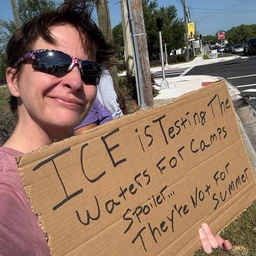 ICE is Testing The
Waters For Camps
Spoiler...
They're Not For
Summer